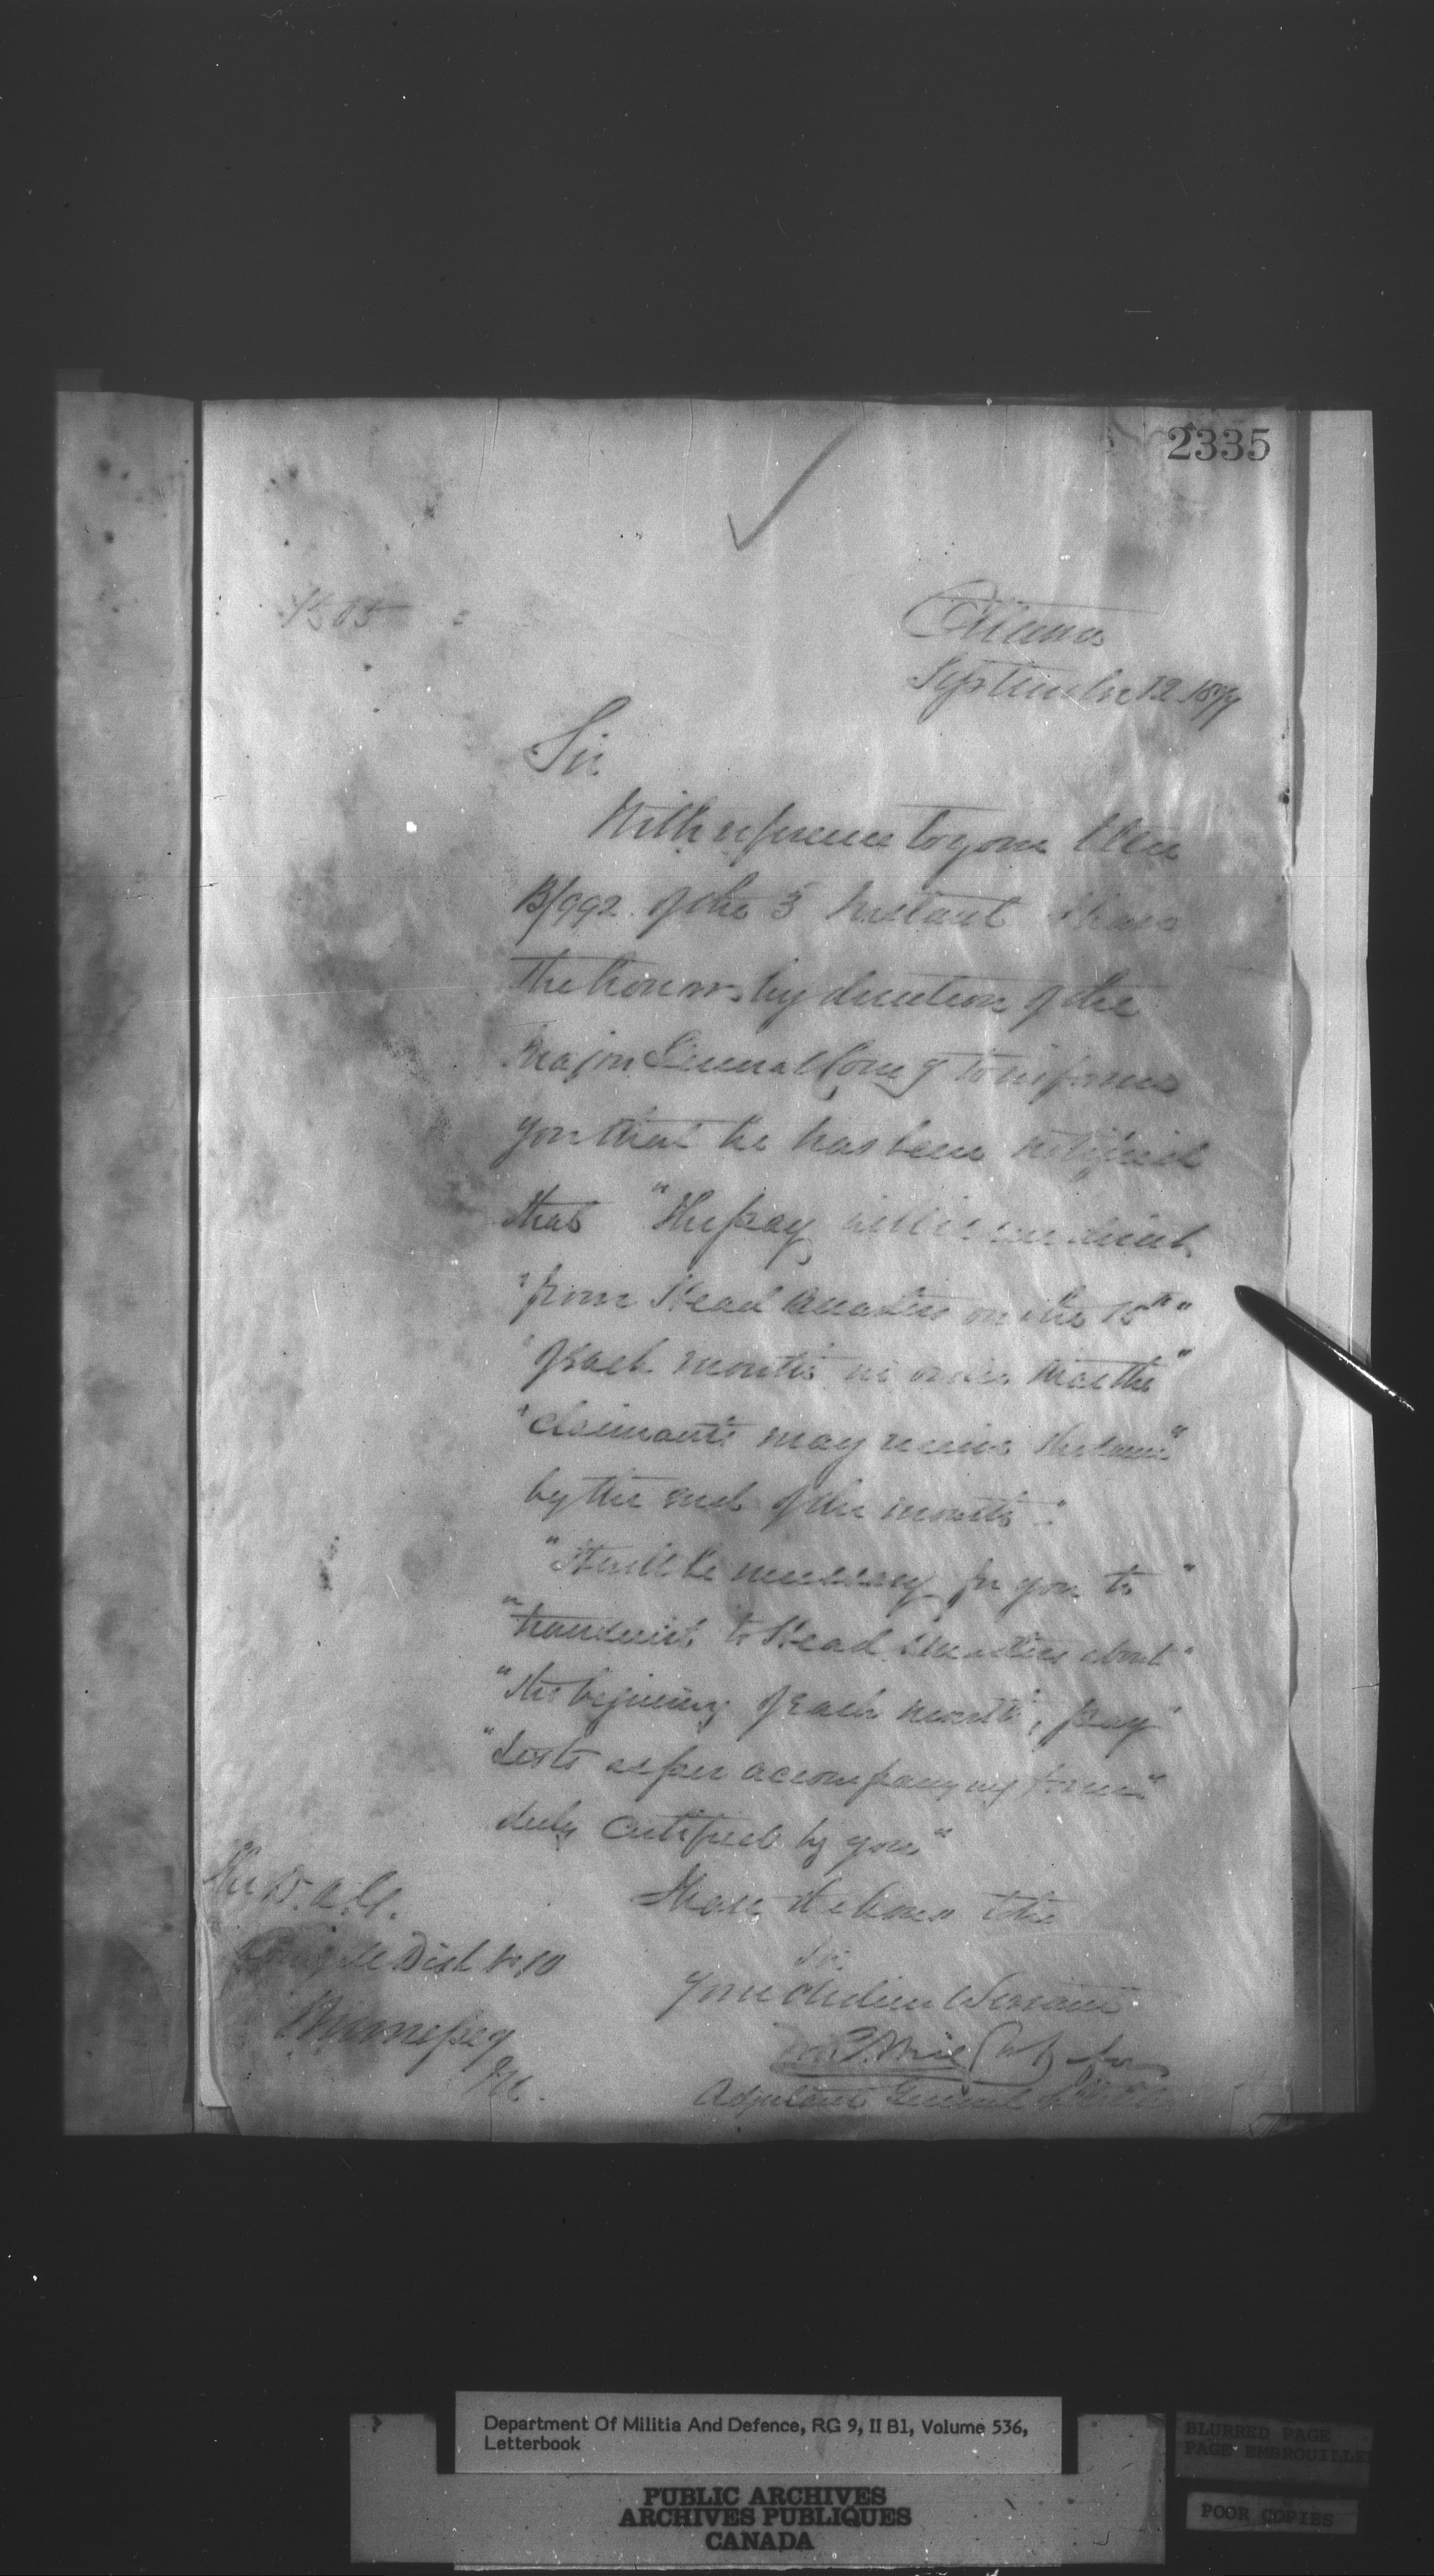 2335
Ottawa
September 12 1879
Sir
With reference to your letter
B/992 of the 5 Instant I have
the honor, by direction of the
Major General Comg to inform
you that he has been notified
that "The pay will be
"from Head Quarters on the 15th"
"of each month in order that the"
"claimants may receive the same"
by the end of the month."
"It will be necessary for you to"
"transmit to Head Quarters about"
"the begining of each month, pay"
"Lists as per accompanying form"
duly certified by you"
I have the honor to be
Sir
Your Obedient Servant
Adjutant General of Militia
The D.A.G.
Comg Mil Dist No 10
Winnepeg
M.
Department Of Militia And Defence, RG 9, II B1, Volume 536,
Letterbook
PUBLIC ARCHIVES
ARCHIVES PUBLIQUES
CANADA
BLURRED PAGE
PAGE EMBROUILLE
POOR COPIES